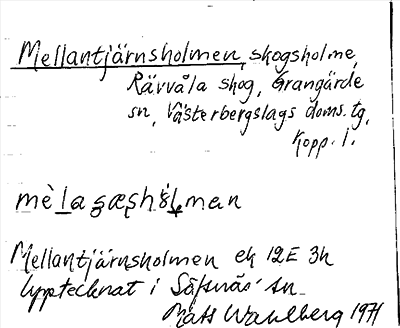 Mellantjärnsholmen, skogsholme,
Rävvåla skog, Grangärde
sn, Västerbergslags doms.tg,
Kopp. l.
Mellantjärnsholmen ek 12E 3h
Upptecknat i Säfsnäs sn
Mats Wahlberg 1971